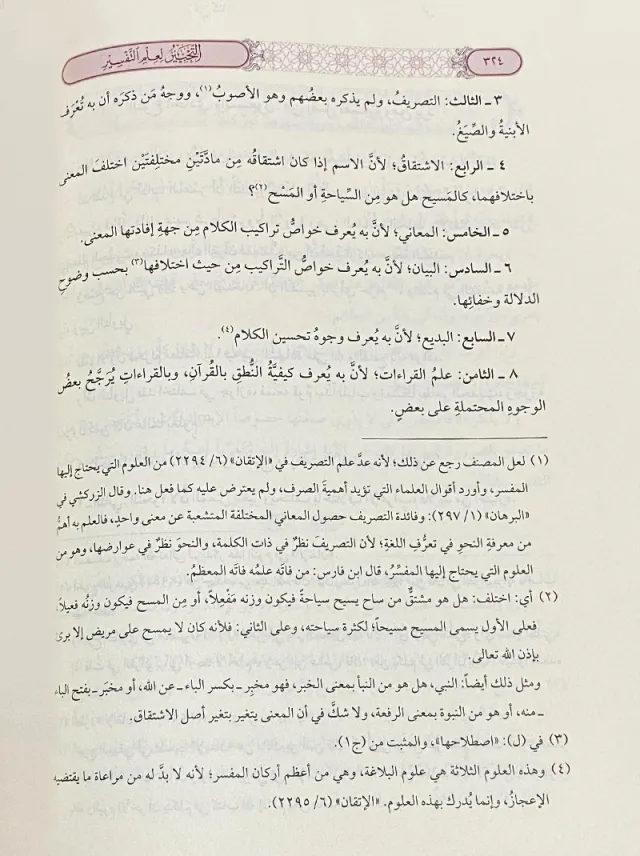 ٣٢٤
التحبير لعلم التفسير
٣ ـ الثالث: التصريفُ، ولم يذكره بعضُهم وهو الأصوبُ(١)، ووجهُ مَن ذكرَه أن به تُعْرَف
الأبنيةُ والصِّيَغُ.
٤ ـ الرابع: الاشتقاقُ؛ لأنَّ الاسم إذا كان اشتقاقُه مِن مادَّتَيْنِ مختلِفتَيْن اختلفَ المعنى
باختلافهما، كالمَسيح هل هو مِن السِّياحةِ أو المَسْح(٢)؟
٥ ـ الخامس: المعاني؛ لأنَّ به يُعرف خواصُّ تراكيب الكلام مِن جهةِ إفادتها المعنى.
٦ ـ السادس: البيان؛ لأنَّ به يُعرف خواصُّ التَّراكيب مِن حيث اختلافها(٣) بحسب وضوحِ
الدلالة وخفائِها.
٧ ـ السابع: البديع؛ لأنَّ به يُعرف وجوهُ تحسين الكلام(٤).
٨ ـ الثامن: علمُ القراءات؛ لأنَّ به يُعرف كيفيَّةُ النُّطقِ بالقُرآنِ، وبالقراءاتِ يُرَجَّحُ بعضُ
الوجوهِ المحتملةِ على بعضٍ.
(١) لعل المصنف رجع عن ذلك؛ لأنه عدَّ علم التصريف في «الإتقان» (٦/ ٢٢٩٤) من العلوم التي يحتاج إليها
المفسر، وأورد أقوال العلماء التي تؤيد أهميةَ الصرف، ولم يعترض عليه كما فعل هنا. وقال الزركشي في
«البرهان» (١/ ٢٩٧): وفائدة التصريف حصول المعاني المختلفة المتشعبة عن معنى واحدٍ، فالعلم به أهمُّ
من معرفةِ النحوِ في تعرُّفِ اللغةِ؛ لأن التصريفَ نظرٌ في ذات الكلمة، والنحوَ نظرٌ في عوارضها، وهو من
العلوم التي يحتاج إليها المفسِّرُ، قال ابن فارس: من فاتَه علمُه فاتَه المعظمُ.
(٢) أي: اختلف: هل هو مشتقٌّ من ساح يسيح سياحةً فيكون وزنه مَفْعِلاً، أو مِن المسح فيكون وزنُه فعيلاً،
فعلى الأول يسمى المسيح مسيحاً؛ لكثرة سياحته، وعلى الثاني: فلأنه كان لا يمسح على مريض إلا برئ
بإذن الله تعالى.
ومثل ذلك أيضاً: النبي، هل هو من النبأ بمعنى الخبر، فهو مخبِر ـ بكسر الباء ـ عن الله، أو مخبَر ـ بفتح الباء
ـ منه، أو هو من النبوة بمعنى الرفعة، ولا شكَّ في أن المعنى يتغير بتغير أصل الاشتقاق.
(٣) في (ل): «اصطلاحها»، والمثبت من (ج١).
(٤) وهذه العلوم الثلاثة هي علوم البلاغة، وهي من أعظم أركان المفسر؛ لأنه لا بدَّ له من مراعاة ما يقتضيه
الإعجازُ، وإنما يُدرك بهذه العلوم. «الإتقان» (٦/ ٢٢٩٥).